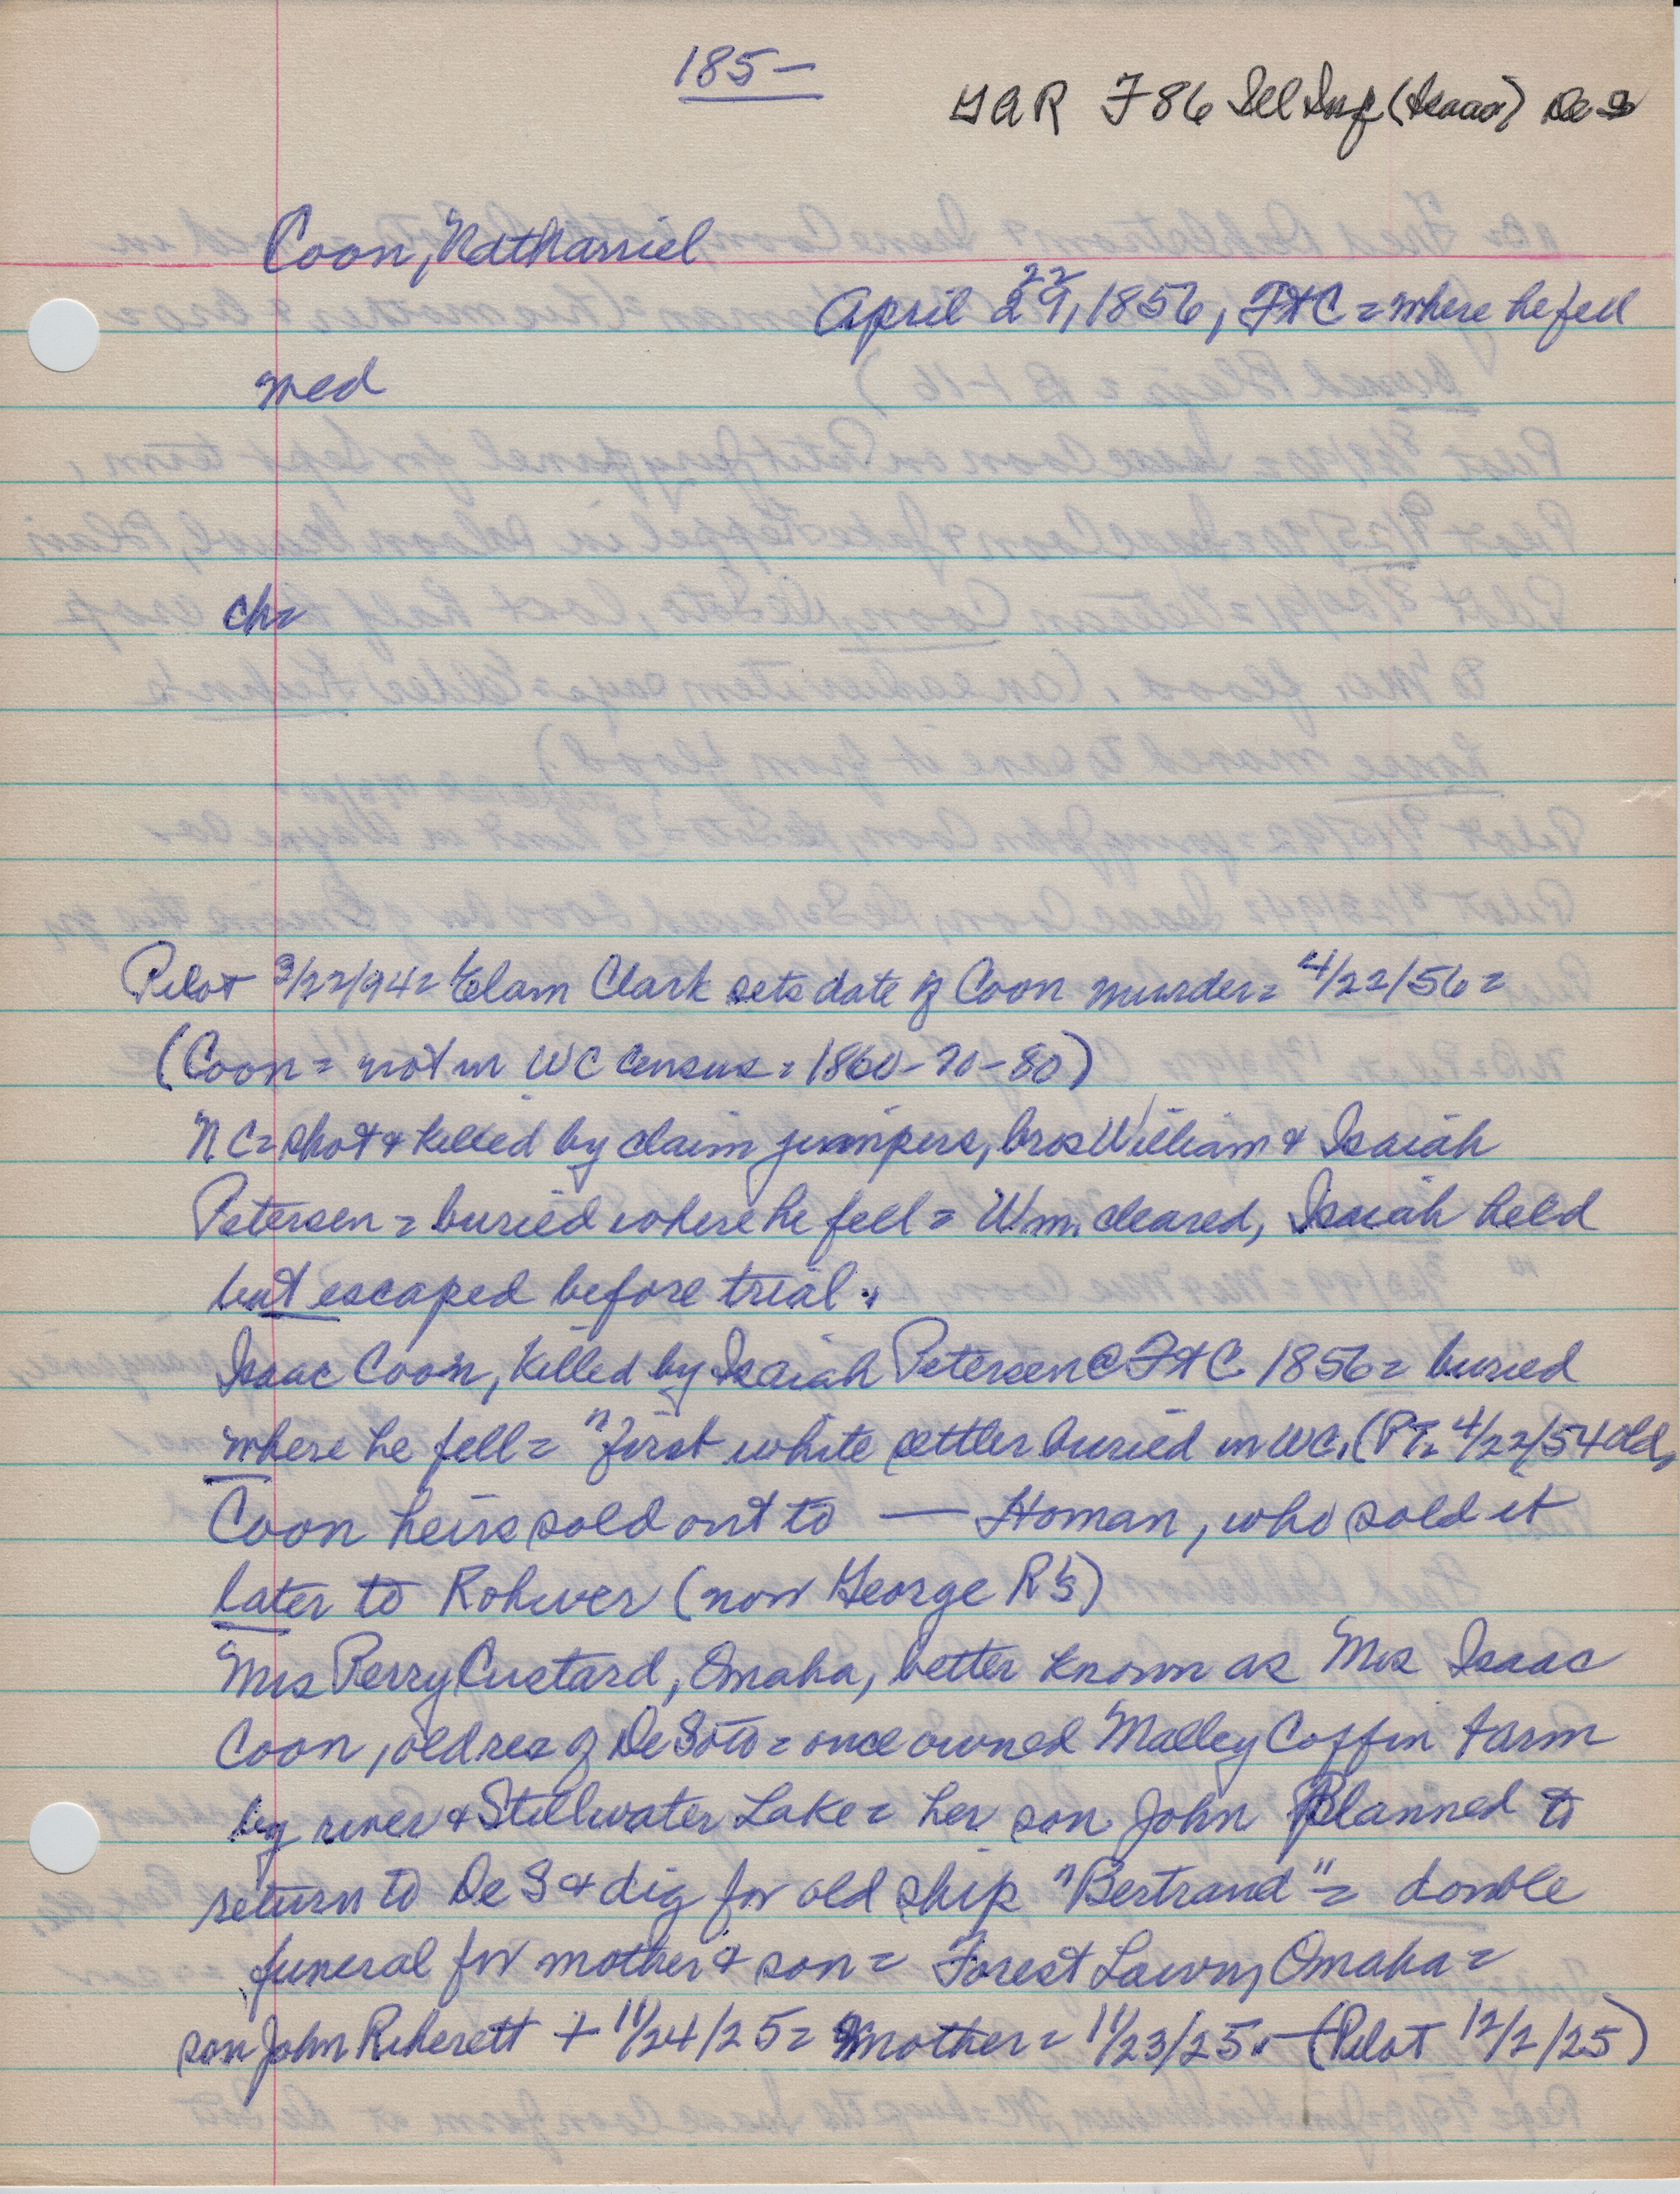 185-
GAR F 86 Ill Inf (Isaac) De S
Coon, Nathaniel
22
April 29, 1856, FtC = where he fell
med
ch=
Pilot 3/22/94 = Elam Clark sets date of Coon murder = 4/22/56 =
(Coon = not in WC census = 1860-70-80)
NC = shot & killed by claim jumpers, bros William & Isaiah
Petersen = buried where he fell = Wm. cleared, Isaiah held
but escaped before trial.
Isaac Coon, killed by Isaiah Petersen @ FtC 1856 = buried
where he fell = "first white settler buried in WC. (PT. 4/22/54 old,
Coon heirs sold out to — Homan, who sold it
later to Rohwer (now George R's)
Mrs Perry Custard, Omaha, better known as Mrs Isaac
Coon, old res of De Soto = once owned Malley Coffin farm
by river & Stillwater Lake = her son John Planned to
return to De S & dig for old ship "Bertrand" = double
funeral for mother & son = Forest Lawn, Omaha =
son John + 11/24/25 = mother = 11/23/25. - (Pilot 12/2/25)